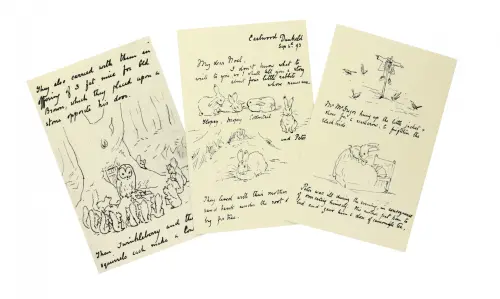 They also carried with them an
offering of 3 fat mice for Old
Brown, which they placed upon a
stone opposite his door.
Then Twinkleberry and the
squirrels each make a low
Eastwood Dunkeld
Sep 4th 93
My dear Noel,
I don't know what to
write to you, so I shall tell you a story
about four little rabbits
whose names were
Flopsy, Mopsy Cottontail
and Peter
They lived with their mother
sand bank under the root of a
big fir tree.
Mr McGregor hung up the little jacket &
shoes for a scarecrow, to frighten the
black birds
Peter was ill during the evening, in consequence
of over eating himself. His mother put him to
bed and gave him a dose of camomile tea,